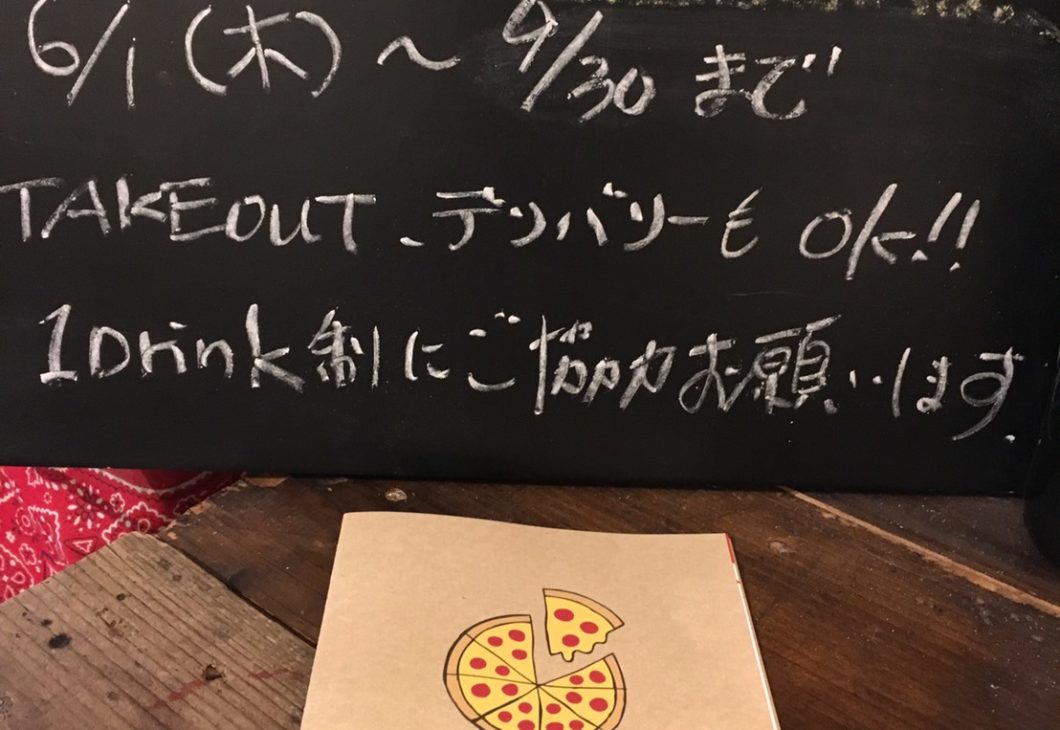 6/1(木)～9/30まで
TAKEOUT、デリバリーもOK!!
1Drink制にご協力お願いします。